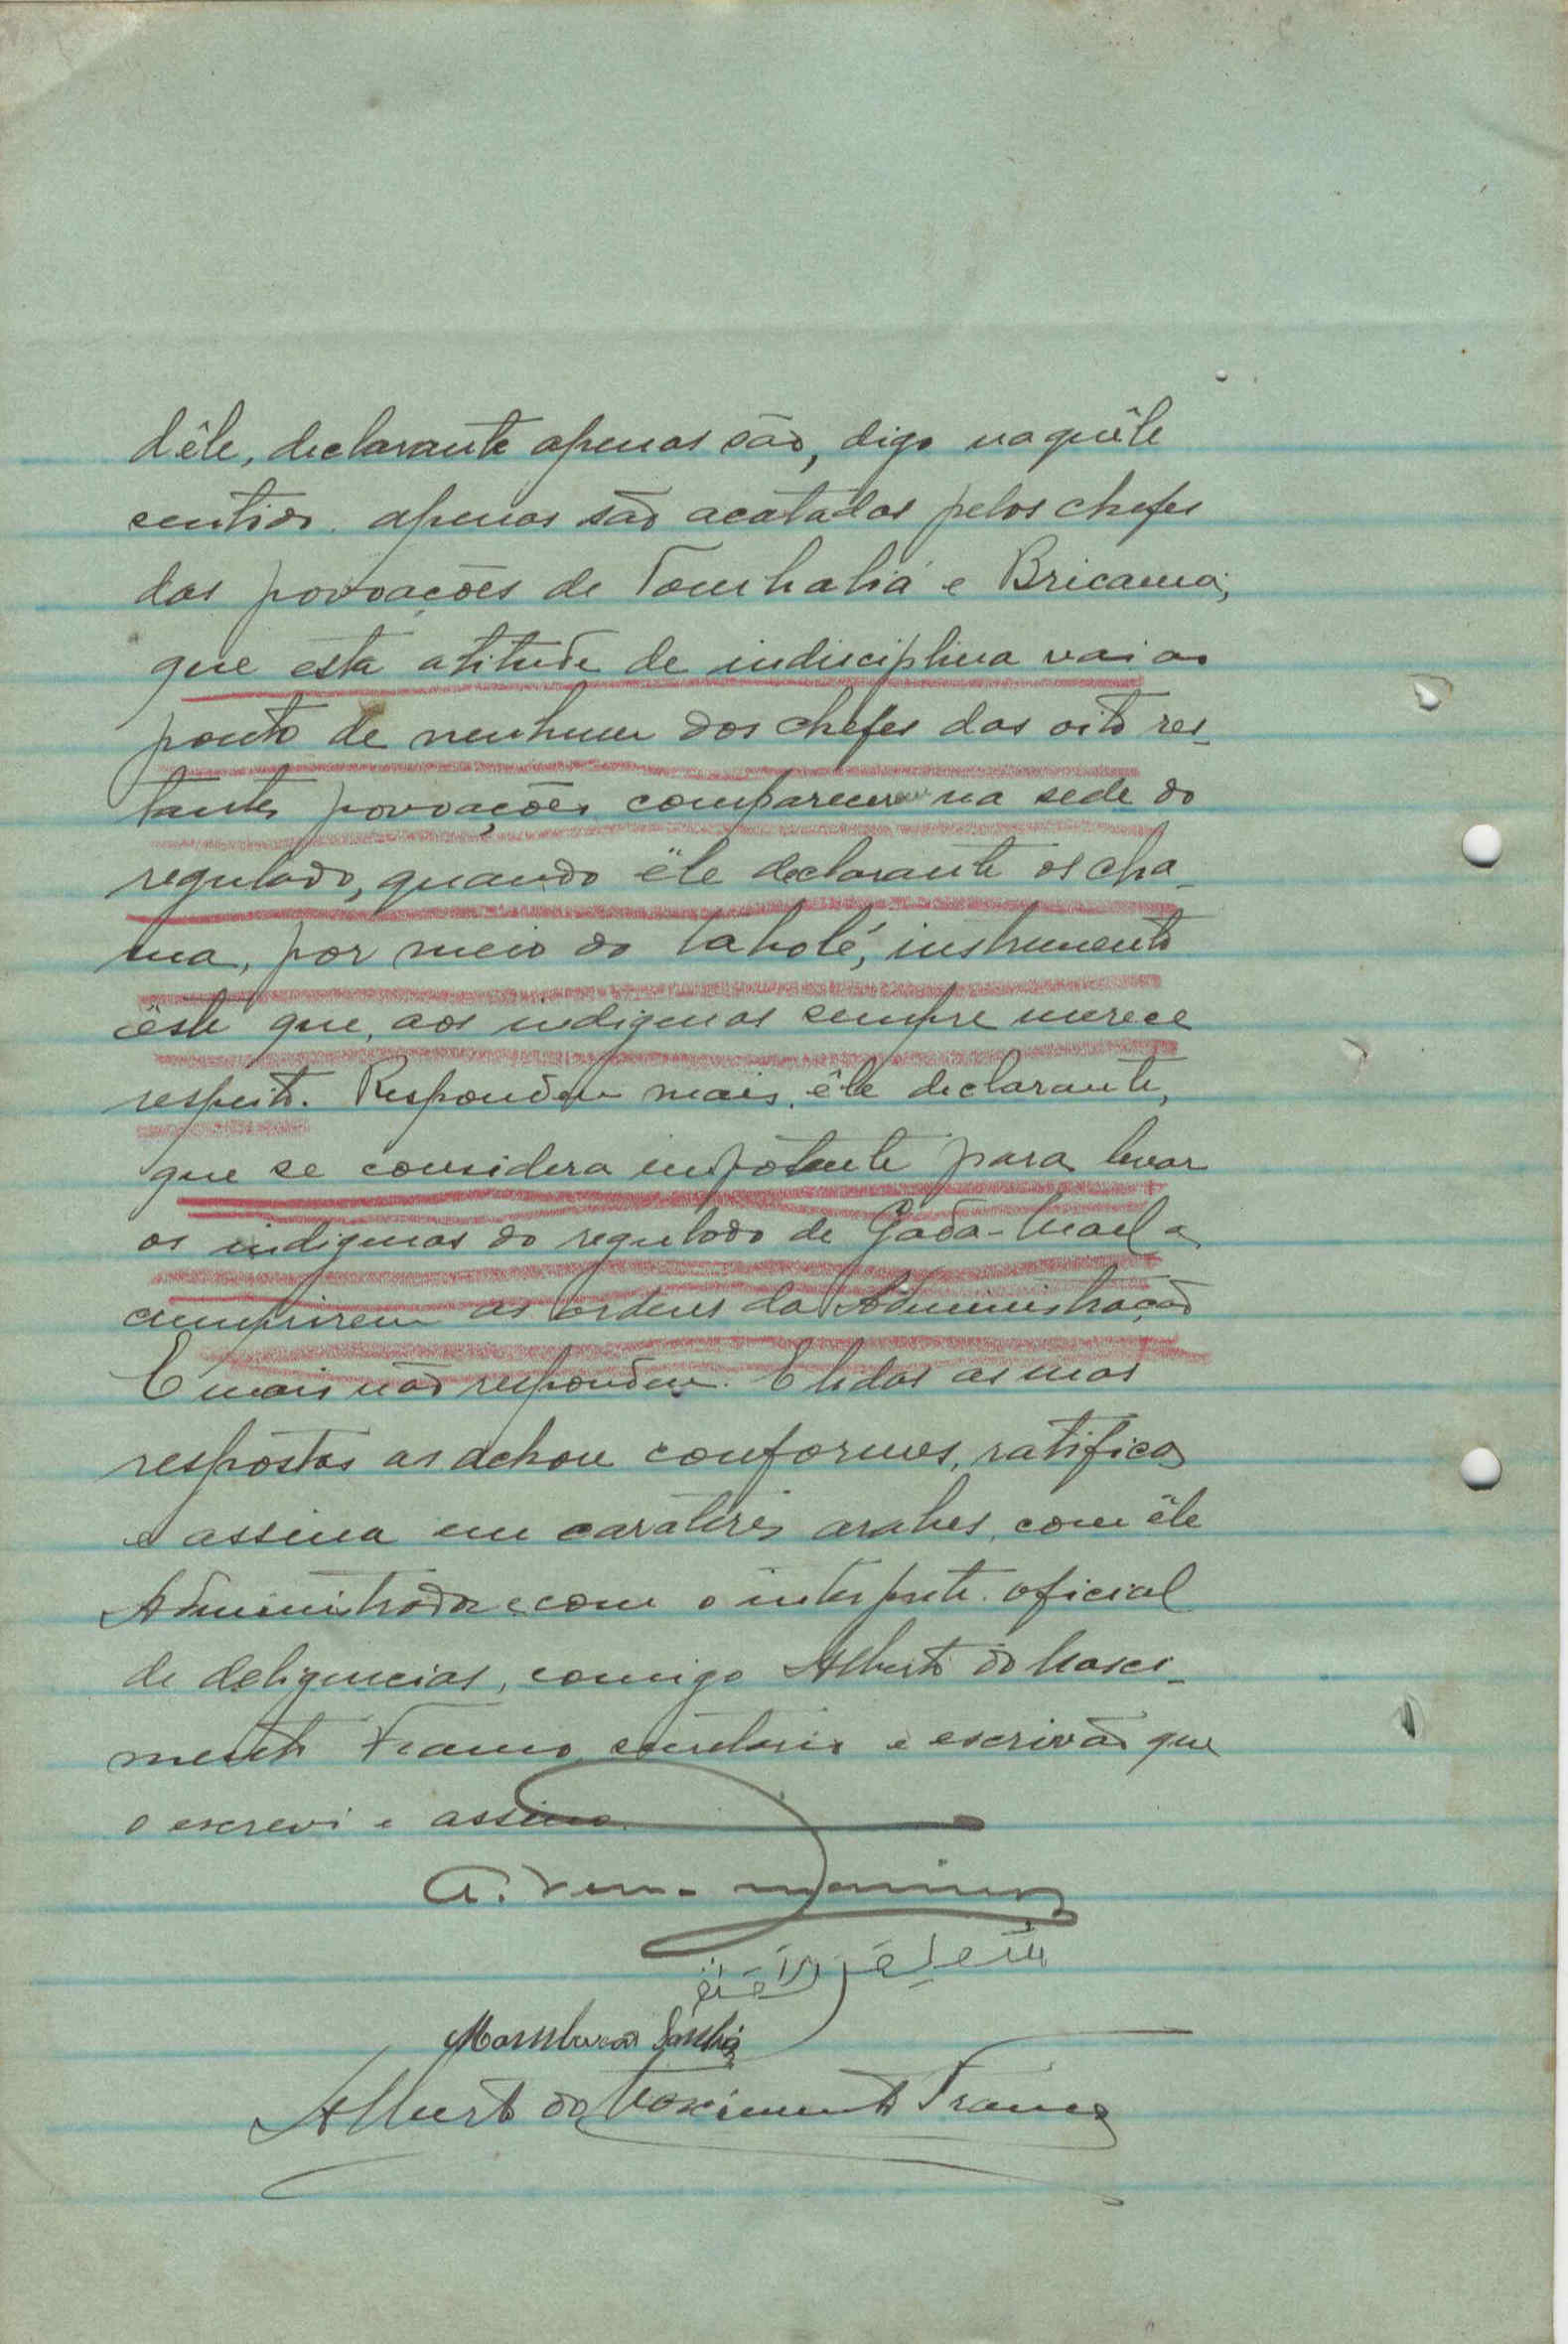 dêle, declarante apenas são, digo naquêle
sentido apenas são acatadas pelos chefes
das povoações de Tombaliá e Bricama;
que esta atitude de indisciplina vai ao
ponto de nenhum dos chefes das oito res-
tantes povoações comparecer na sede do
regulado, quando êle declarante os cha-
ma, por meio do tabolé, instrumento
êste que, aos indigenas sempre merece
respeito. Respondeu mais, êle declarante,
que se considera impotente para levar
os indigenas do regulado de Gada-Mael a
cumprirem as ordens da Administração
E mais não respondeu. E lidas as suas
respostas as achou conformes, ratifica
e assina em caratéres arabes, com êle
Administrador e com o interprete oficial
de deligencias, comigo Alberto do Nasci-
mento Franco, secretario e escrivão que
o escrevi e assino.
A.
Alberto do Nascimento Franco